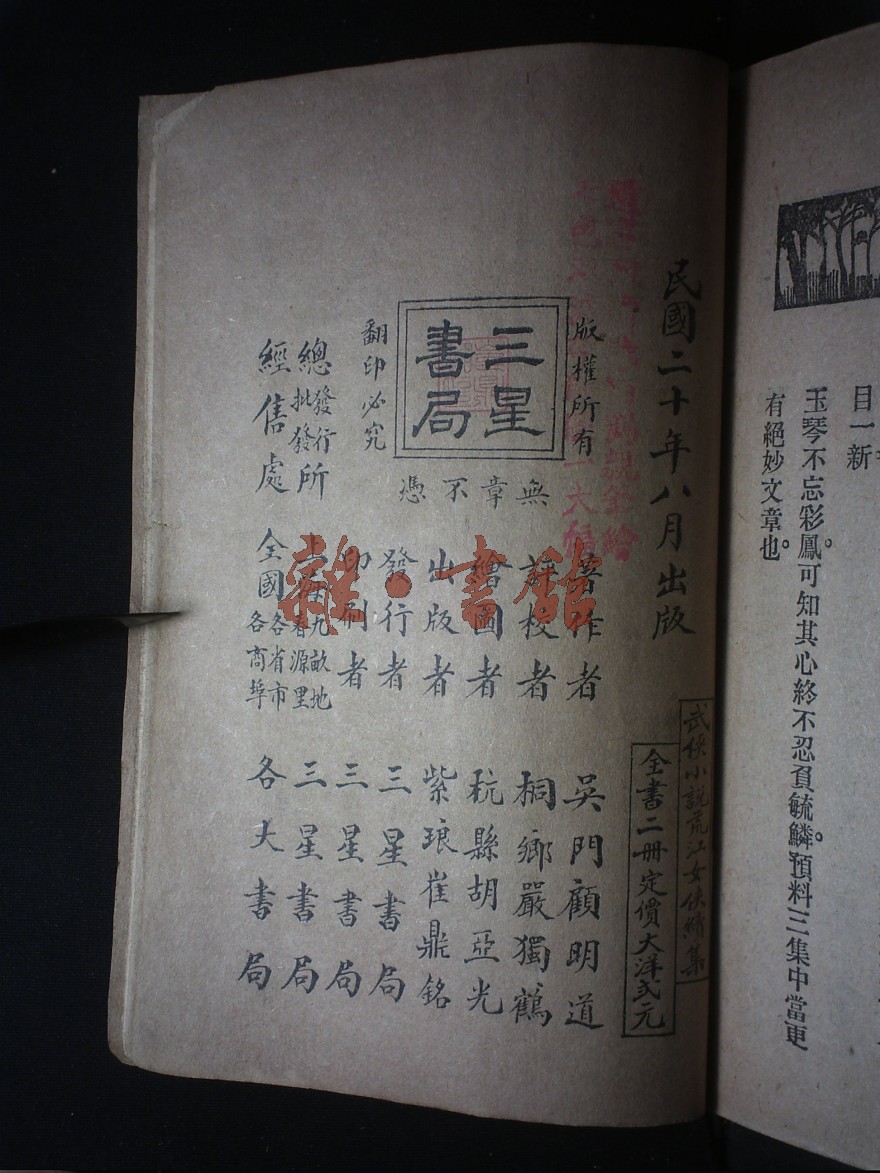 目一新
玉琴不忘彩鳳。可知其心終不忍負毓鱗。預料三集中當更
有絕妙文章也。
武俠小說荒江女俠續集
民國二十年八月出版
全書二冊定價大洋弍元
版權所有
三星
書局
翻印必究
無章不憑
著作者 吳門顧明道
評校者 桐鄉嚴獨鶴
繪圖者 杭縣胡亞光
出版者 紫琅崔鼎銘
發行者 三星書局
印刷者 三星書局
總發行批發所 上海九畝地春源里 三星書局
經售處 全國各省市各商埠 各大書局
雜·書館